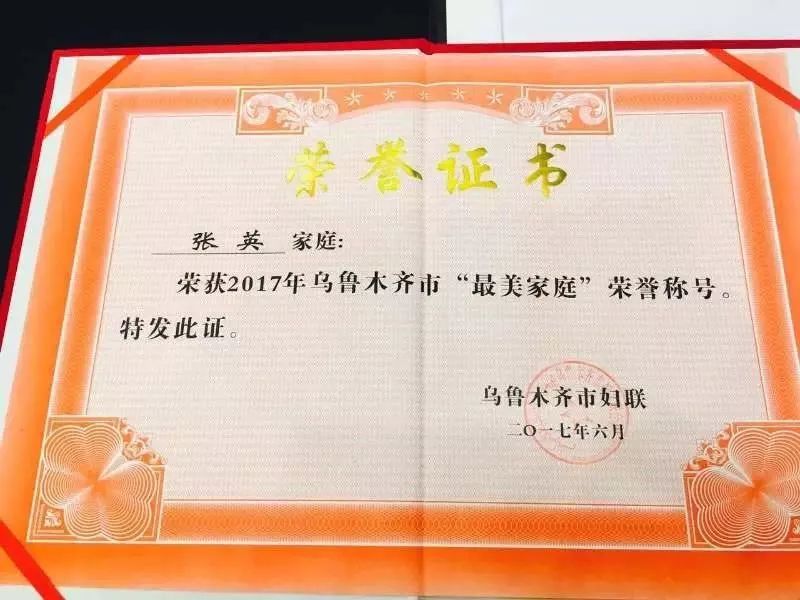 荣誉证书
张英 家庭:
荣获2017年乌鲁木齐市“最美家庭”荣誉称号。
特发此证。
乌鲁木齐市妇联
二〇一七年六月